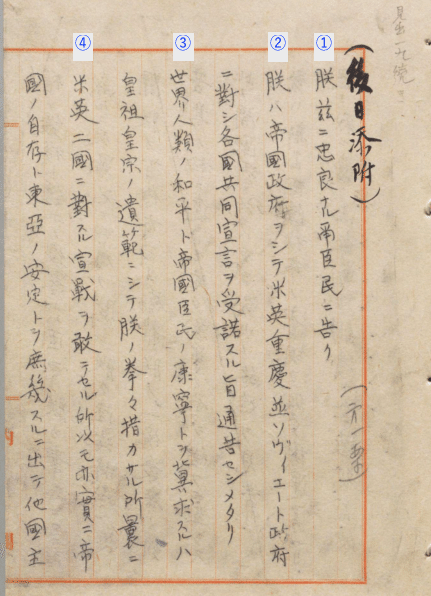 (後日添附)
①
朕茲ニ忠良ナル爾臣民ニ告ク
(第一案)
②
朕ハ帝國政府ヲシテ米英重慶並ソヴィエート政府
ニ對シ各國共同宣言ヲ受諾スル旨通告セシメタリ
③
世界人類ノ和平ト帝國臣民ノ康寧トヲ冀求スルハ
皇祖皇宗ノ遺範ニシテ朕ノ拳々措カサル所曩ニ
④
米英二國ニ對スル宣戰ヲ敢テセル所以モ亦實ニ帝
國ノ自存ト東亞ノ安定トヲ庶幾スルニ出テ他國主